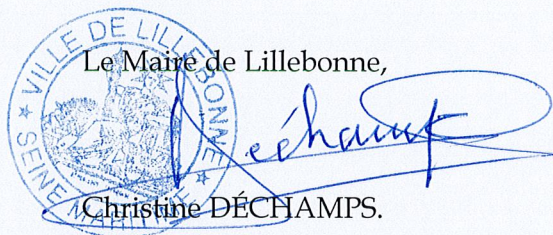 VILLE DE LILLEBONNE
★ SEINE MARITIME ★
Le Maire de Lillebonne,
Déchamps
Christine DÉCHAMPS.